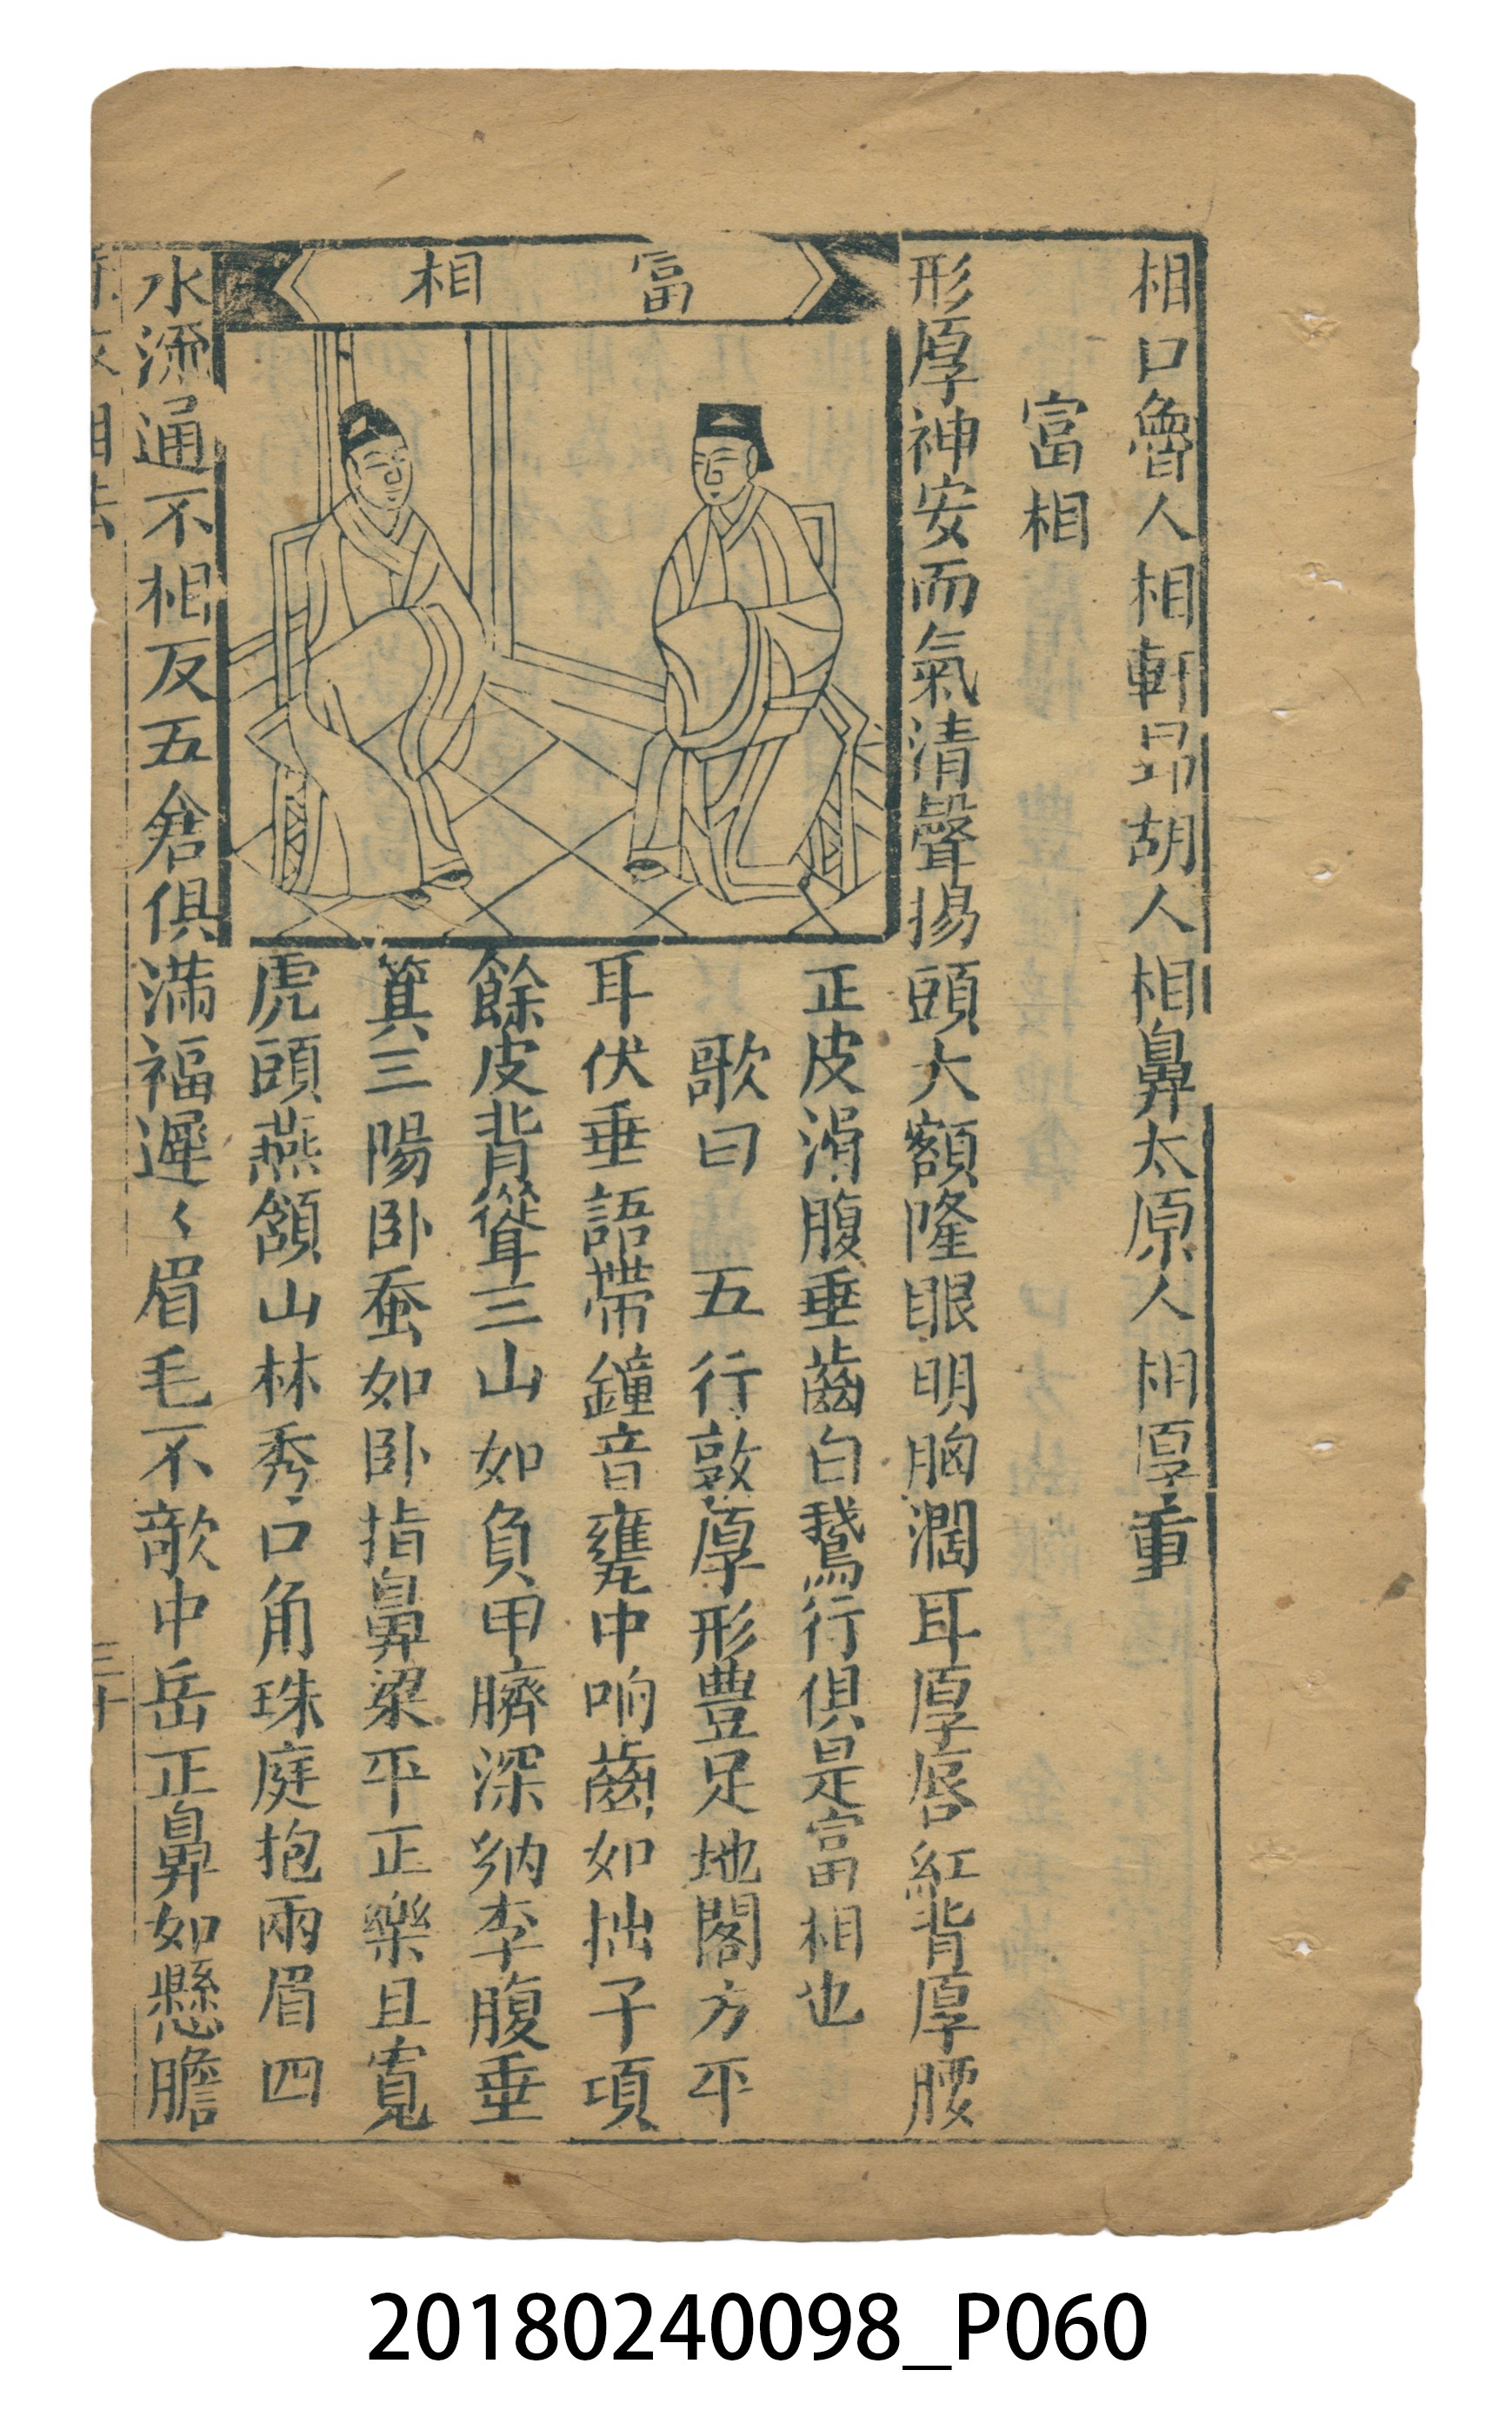 相口魯人相軒昂胡人相鼻太原人相厚重
富相
形厚神安而氣清聲揚頭大額隆眼明胸濶耳厚唇紅背厚腰
富相
正皮滑腹垂齒白鵝行俱是富相也
歌曰　五行敦厚形豊足地閣方平
耳伏垂語帶鐘音甕中响齒如拙子項
餘皮背聳三山如負甲臍深納李腹垂
箕三陽卧蚕如卧指鼻梁平正樂且寬
虎頭燕頷山林秀口角珠庭抱兩眉四
水流通不相反五倉俱滿福遲〻眉毛不歆中岳正鼻如懸膽
相法
三十
20180240098_P060